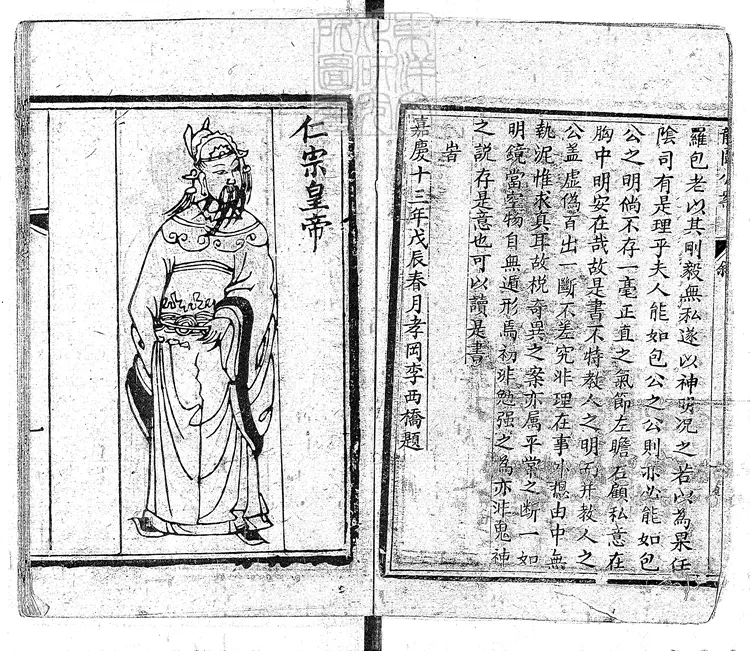 羅包老以其剛毅無私遂以神明况之若以為果任
陰司有是理乎夫人能如包公之公則亦必能如包
公之明倘不存一毫正直之氣節左瞻右顧私意在
胸中明安在哉故是書不特教人之明而并教人之
公盖虛偽百出一斷不差究非理在事外想由中無
執泥惟求真耳故梲奇異之案亦属平常之断一如
明鏡當空物自無遁形焉初非勉强之為亦非鬼神
之説存是意也可以讀是書
旹
嘉慶十三年戊辰春月孝岡李西橋題
仁宗皇帝